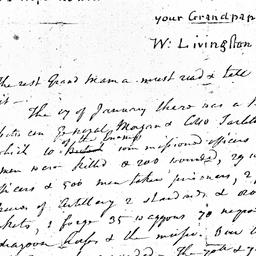 your Grandpap
W: Livingston
The rest Grand Mama must read & tell
it —
The 17 of January there was a
General Morgan & Col Tarlt
which to of the enemies commissioned officers
men were killed & 200 wounded, 29
officers & 500 men taken prisoners, 2
pieces of Artillery 2 standards & 800
kets, 1 forge 35 waggons 70 negroes
dragoon horses & the music. Over